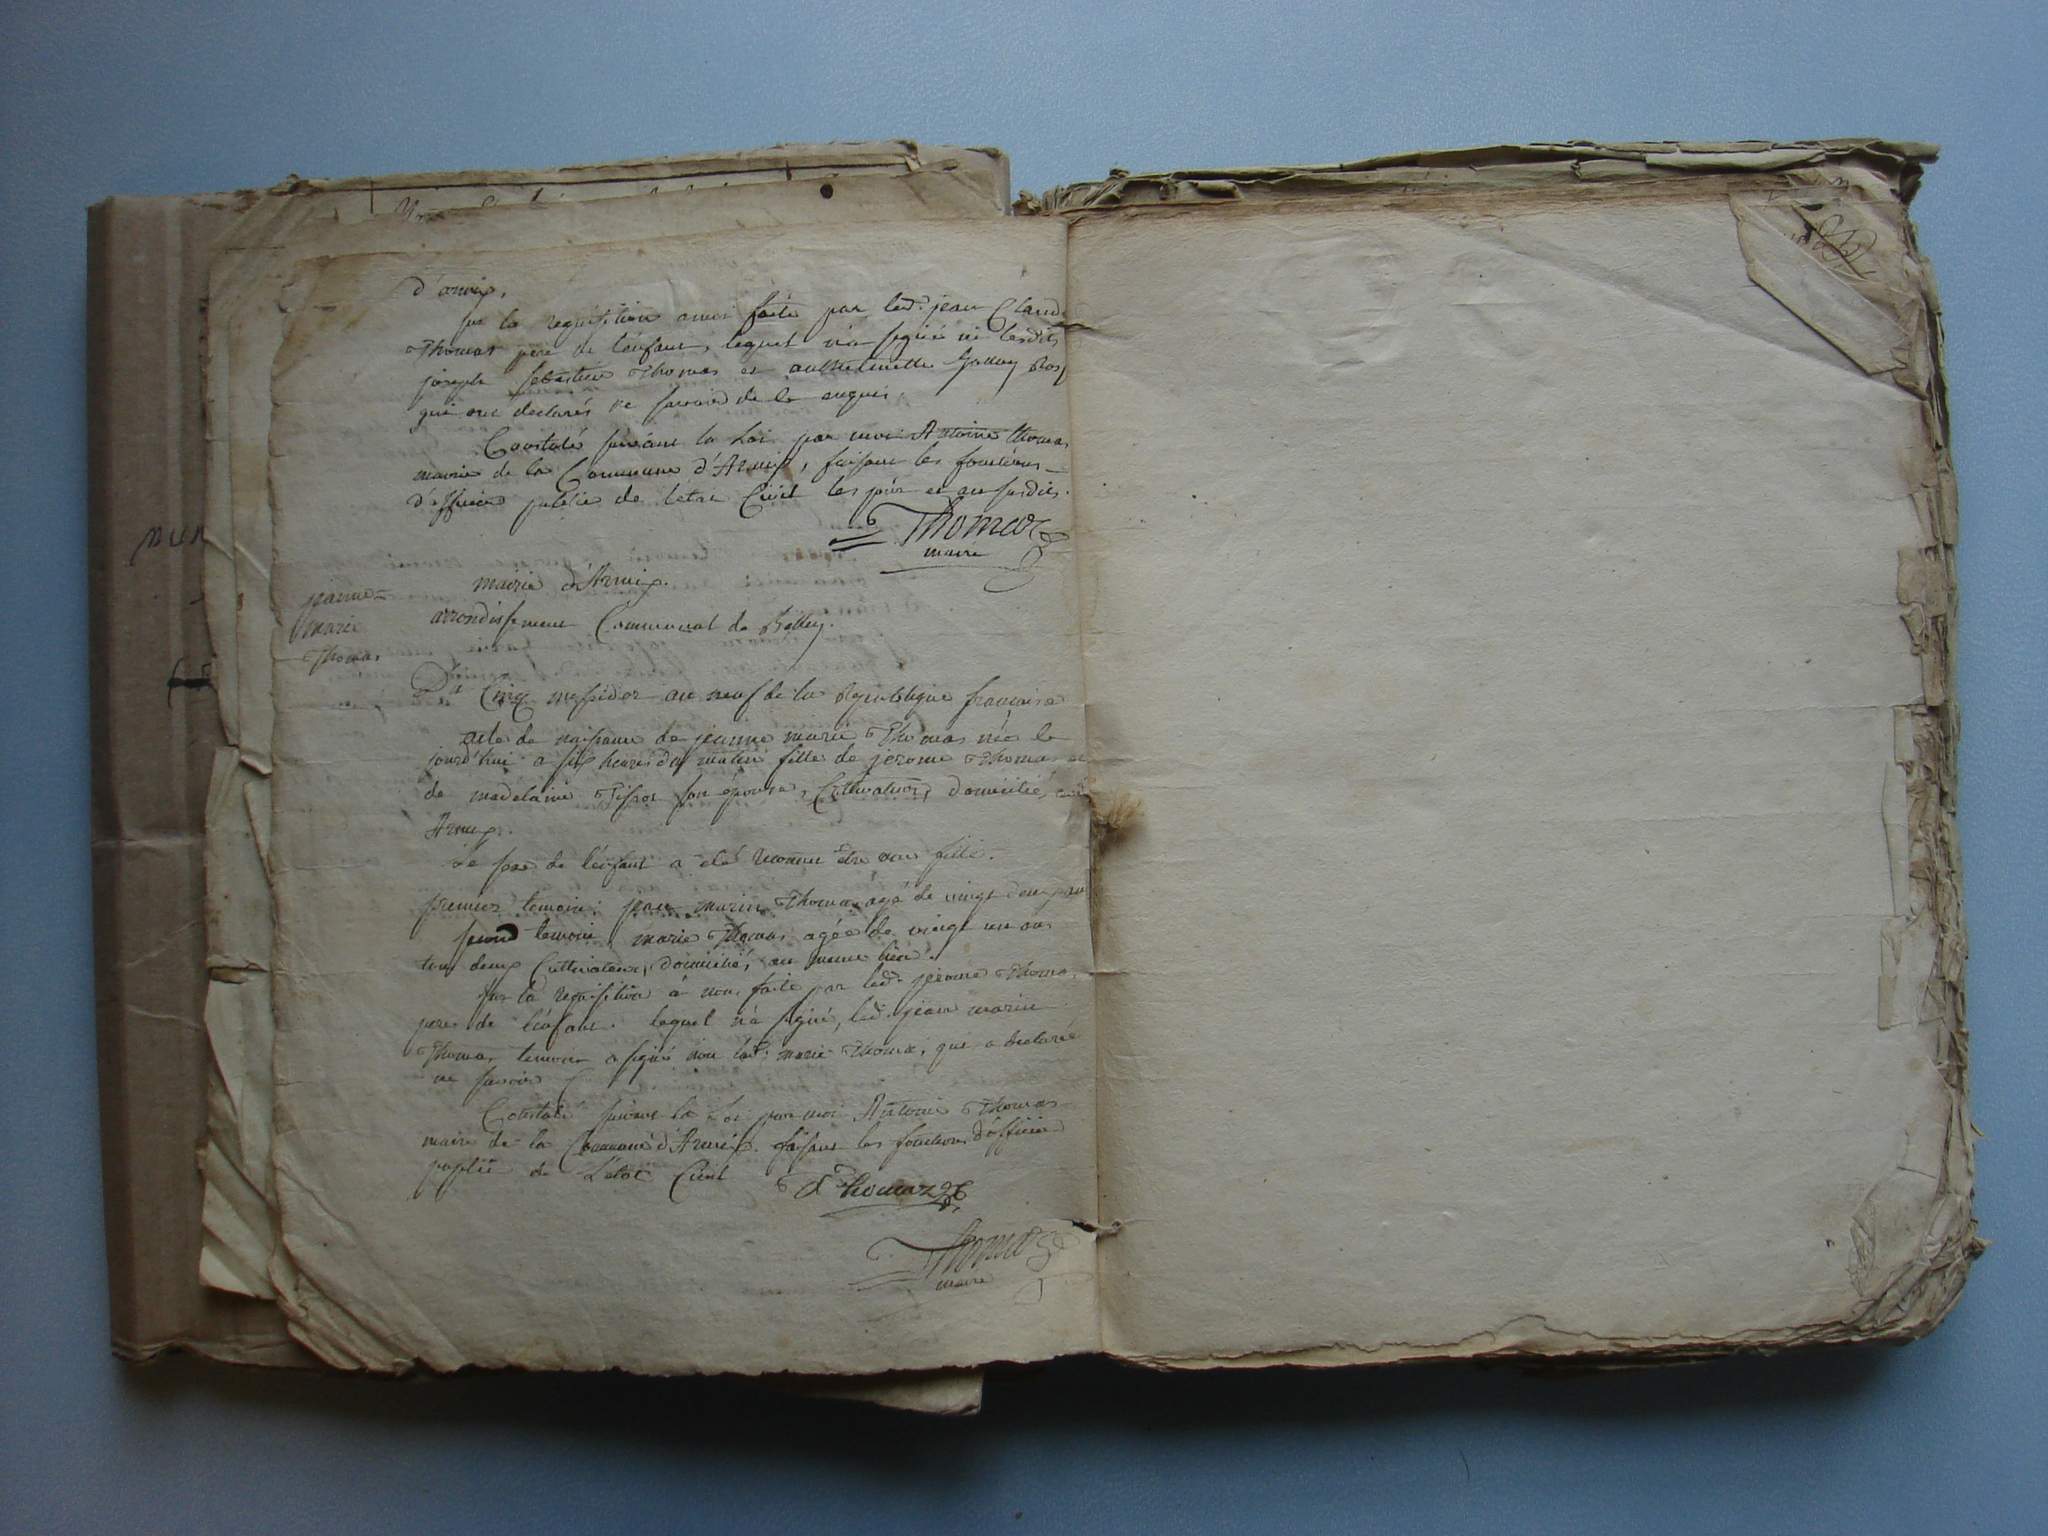 d'armix,
sur la requisition a moi faite par led. jean Claud
Thomas pere de l'enfant, lequel n'a signé ni lesdits
joseph sebastien Thomas et anthelmette
qui ont declarés ne savoir de ce enquis.
Constaté suivant la Loi par moi Antoine thomas
maire de la Commune d'Armix, faisant les fonctions
d'officier public de l'etat Civil les jour et an susdits.
Thomas
maire
jeanne=
marie
Thomas
mairie d'Armix.
arrondissement Communal de Belley.
Du Cinq messidor an neuf de la Republique française
acte de naissance de jeanne marie Thomas née le
jourd'hui a six heures du matin fille de jerome Thomas et
de madelaine Tissot son épouse, Cultivateurs, domiciliés
Armix.
Le sexe de l'enfant a été reconnu etre une fille.
premier temoin: jean marin Thomas agé de vingt deux ans
second temoin, marie Thomas agée de vingt un ans
tous deux Cultivateurs, domiciliés, au meme lieu.
sur la requisition a nous faite par led. jérome Thomas
pere de l'enfant. lequel n'a signé, led. jean marin
Thomas temoin a signé non lad. marie Thomas, qui a declarée
ne savoir
Constaté suivant la Loi par moi Antoine Thomas
maire de la Commune d'Armix. faisant les fonctions d'officier
puplic de L'etat Civil
Thomas
Thomas
maire